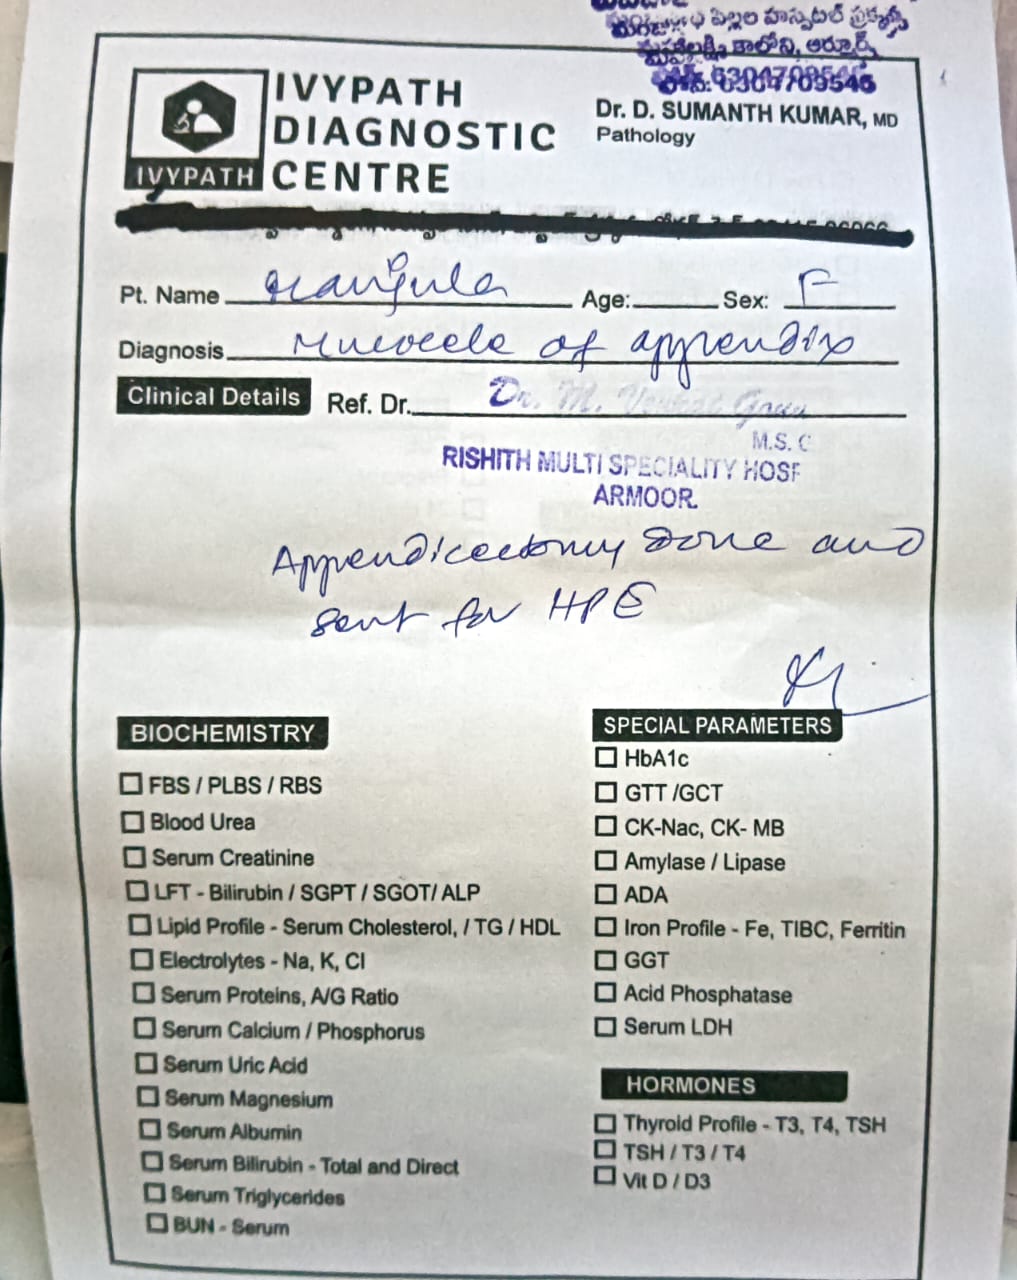 పిల్లల హాస్పటల్ ప్రక్కన
కాలోని, ఆర్మూర్
IVYPATH
DIAGNOSTIC
CENTRE
IVYPATH
Dr. D. SUMANTH KUMAR, MD
Pathology
Pt. Name Age: Sex: F
Diagnosis Mucocele of appendix
Clinical Details Ref. Dr. Dr. M. Venkat
M.S.
RISHITH MULTI SPECIALITY HOSP
ARMOOR.
Appendicectomy done and
sent for HPE
BIOCHEMISTRY
FBS / PLBS / RBS
Blood Urea
Serum Creatinine
LFT - Bilirubin / SGPT / SGOT/ ALP
Lipid Profile - Serum Cholesterol, / TG / HDL
Electrolytes - Na, K, Cl
Serum Proteins, A/G Ratio
Serum Calcium / Phosphorus
Serum Uric Acid
Serum Magnesium
Serum Albumin
Serum Bilirubin - Total and Direct
Serum Triglycerides
BUN - Serum
SPECIAL PARAMETERS
HbA1c
GTT /GCT
CK-Nac, CK- MB
Amylase / Lipase
ADA
Iron Profile - Fe, TIBC, Ferritin
GGT
Acid Phosphatase
Serum LDH
HORMONES
Thyroid Profile - T3, T4, TSH
TSH / T3 / T4
Vit D / D3